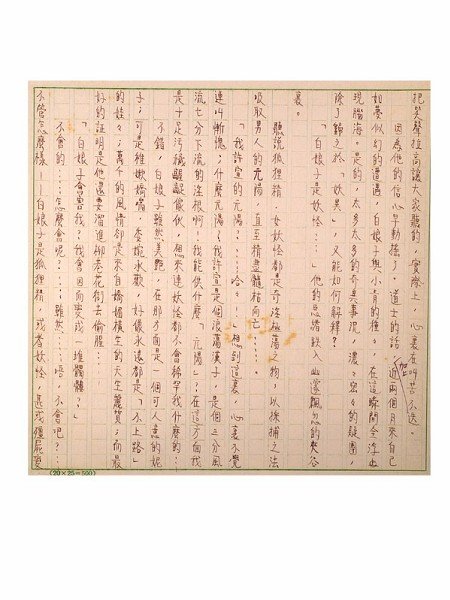 把哭聲拉高讓大家聽的，實際上，心裏在叫苦不迭。
因為他的信心早動搖了。道士的話，加上近兩個月來自己
如夢似幻的遭遇，白娘子與小青的種々，在這瞬間全浮如
現腦海。是的，太多太多的奇異事況，濃々密々的疑團，
除了歸之於「妖異」，又能如何解釋？
「白娘子是妖怪……」他的思緒跌入幽邃飄忽的失谷
裏。
聽說狐狸精、女妖怪都是奇淫極蕩之物，以採捕之法
吸取男人的元陽，直至精盡髓枯而亡……。
「我許宣的元陽？……哈々！」想到這裏，心裏不覺
連叫慚愧；什麼元陽？我許宣是個浪蕩漢子，是個三分風
流七分下流的淫棍啊！我能供什麼「元陽」，在這方面我
是手足污穢齷齪傢伙，想來連妖怪都不會稀罕我什麼的…
不錯，白娘子雖然美艷，在那方面是一個可人意的妮
子；可是稚嫩嬌嚅，委婉承歡，好像永遠都是「不上路」
的娃々；萬千的風情卻是來自嬌媚橫生的天生麗質；而最
好的証明是他還要溜進柳巷花街去偷腥…
「白娘子會害我？我會因而變成一堆髑髏？」
不會的……怎麼會呢？……雖然……唔，不會吧？…
不管怎麼樣——白娘子是狐狸精，或者妖怪，甚或殭屍變
(20×25=500)